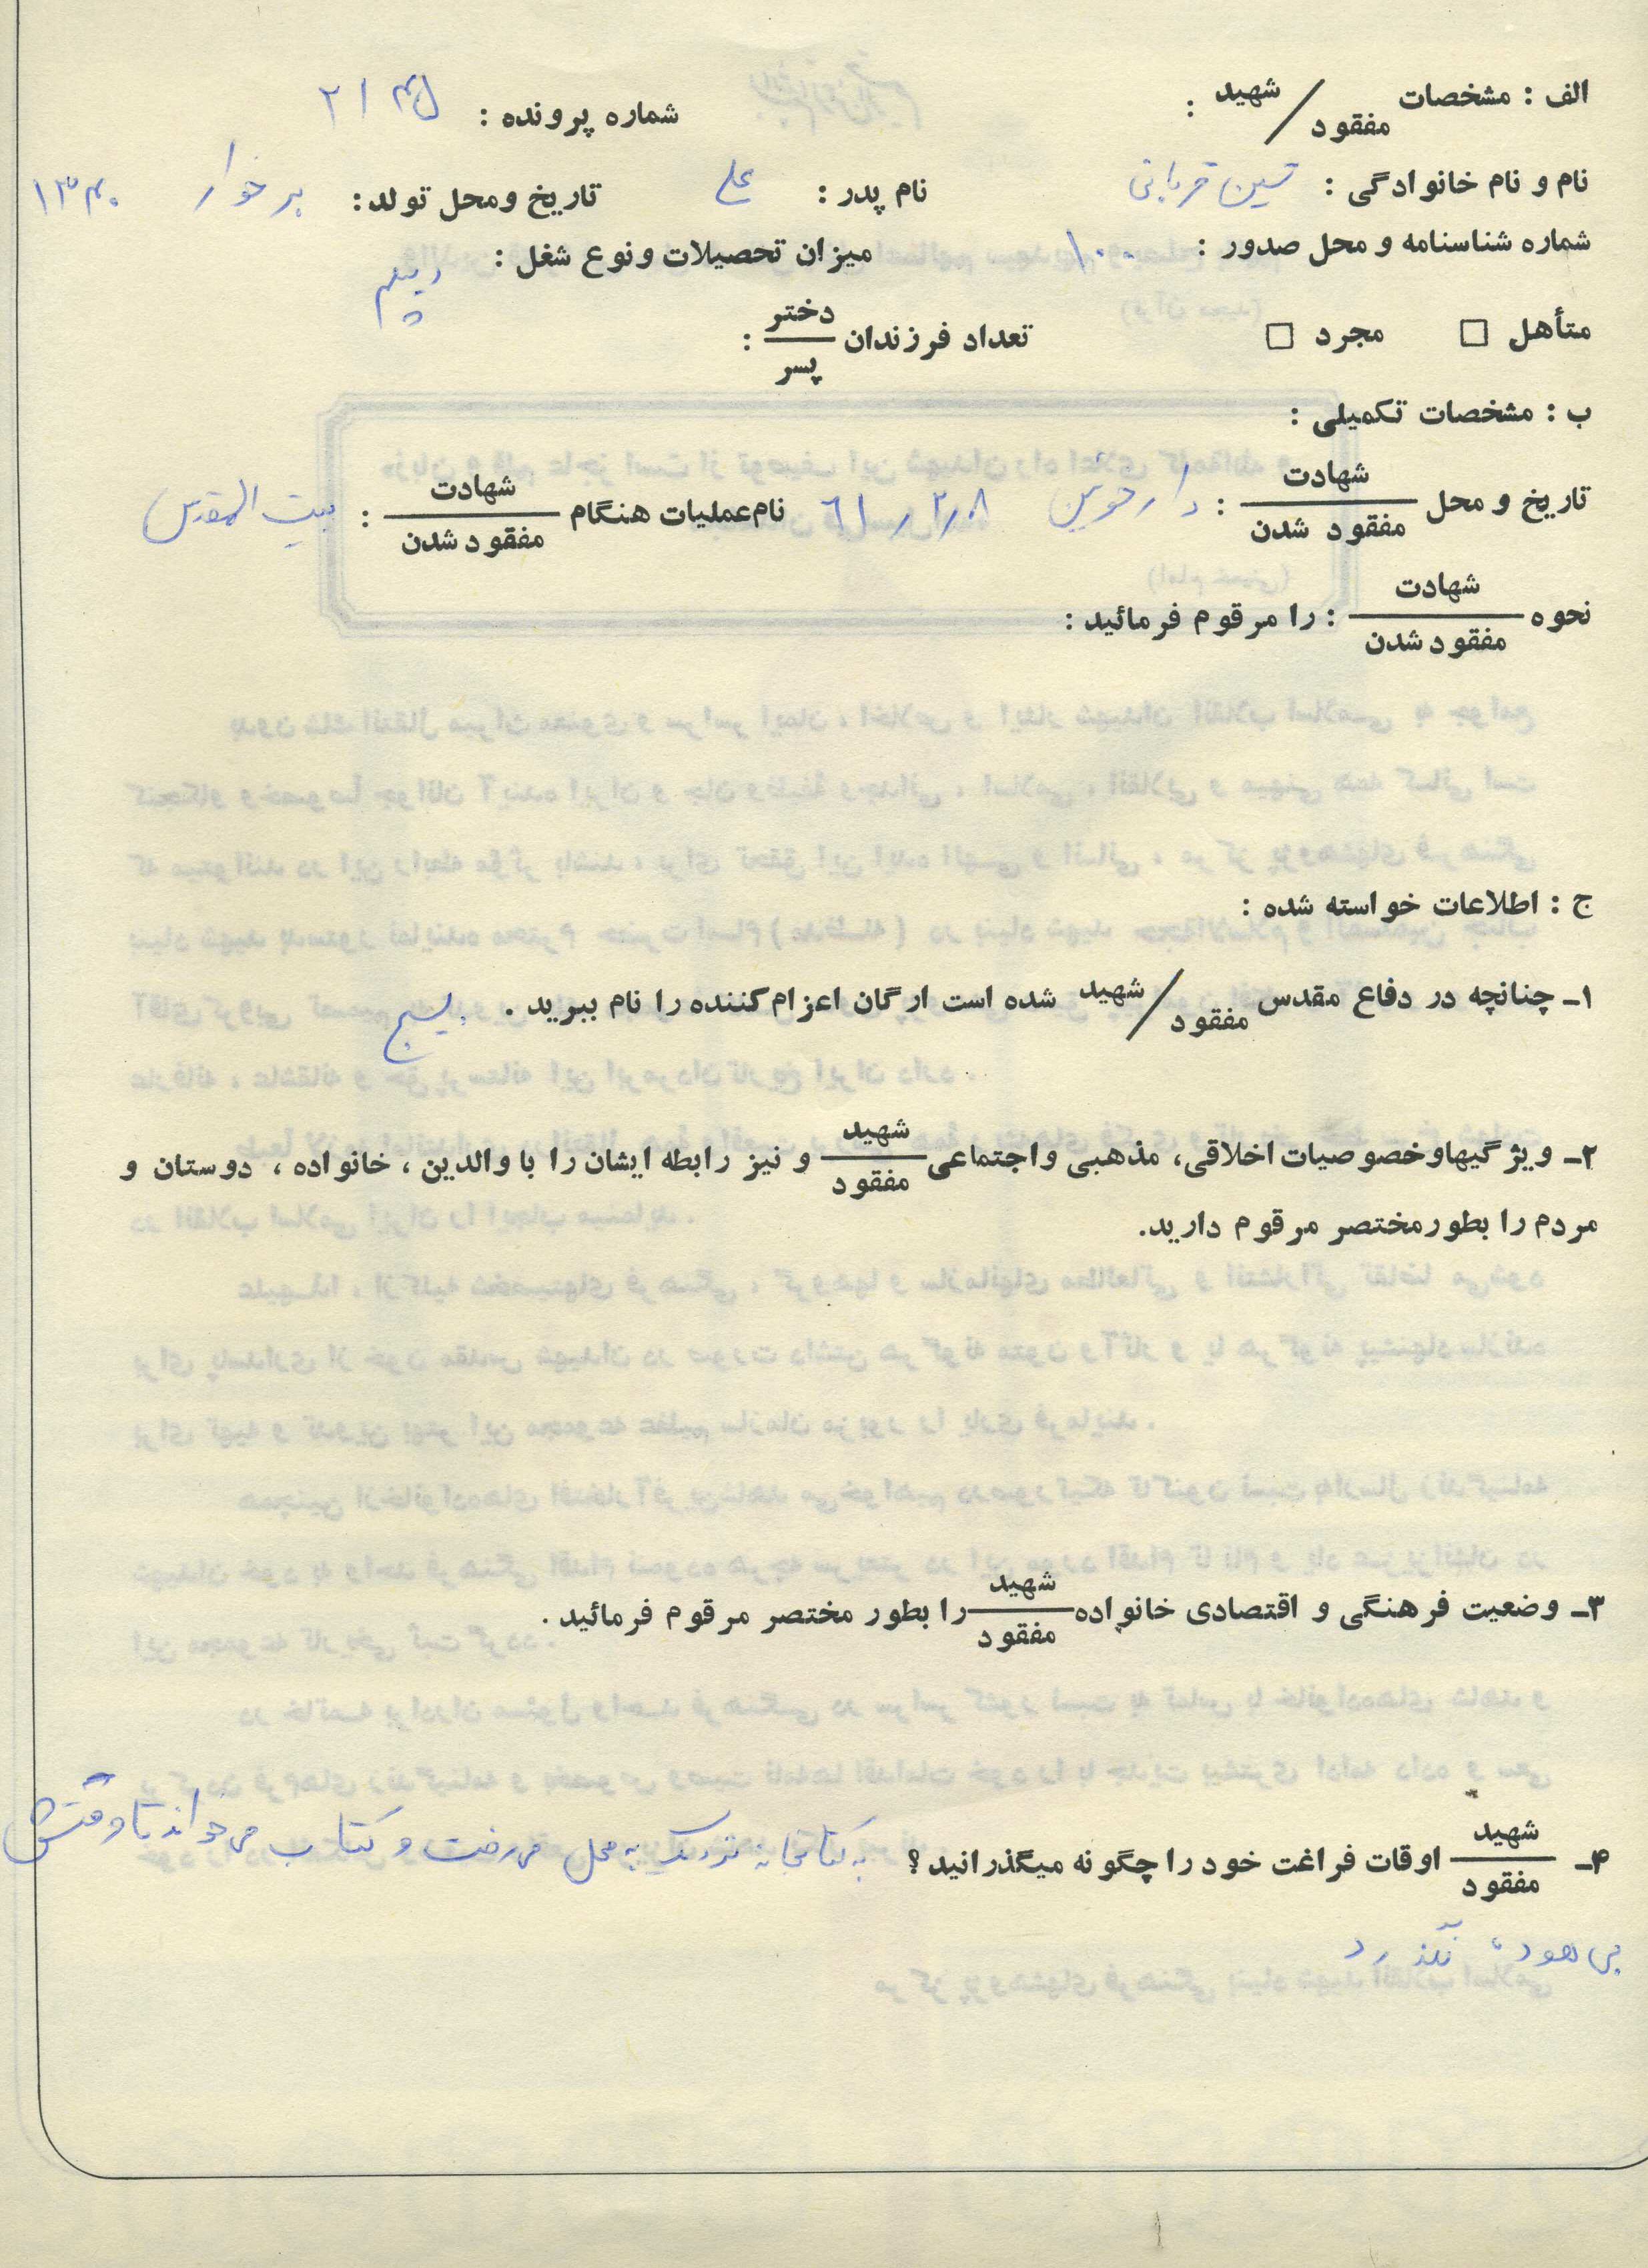 الف : مشخصات شهید / مفقود :
شماره پرونده :
نام و نام خانوادگی : حسین قربانی نام پدر : علی تاریخ ومحل تولد : برخوار ۱۳۴۰
شماره شناسنامه و محل صدور : ۱۰۰ میزان تحصیلات ونوع شغل : دیپلم
متأهل □ مجرد □ تعداد فرزندان دختر / پسر :
ب : مشخصات تکمیلی :
تاریخ و محل شهادت / مفقود شدن : دارخوین ۶۱/۲/۸ نام عملیات هنگام شهادت / مفقود شدن : بیت المقدس
نحوه شهادت / مفقود شدن : را مرقوم فرمائید :
ج : اطلاعات خواسته شده :
۱ـ چنانچه در دفاع مقدس شهید / مفقود شده است ارگان اعزام کننده را نام ببرید . بسیج
۲ـ ویژگیها و خصوصیات اخلاقی، مذهبی و اجتماعی شهید / مفقود و نیز رابطه ایشان را با والدین ، خانواده ، دوستان و
مردم را بطور مختصر مرقوم دارید.
۳ـ وضعیت فرهنگی و اقتصادی خانواده شهید / مفقود را بطور مختصر مرقوم فرمائید .
۴ـ شهید / مفقود اوقات فراغت خود را چگونه میگذرانید ؟ به کتابخانه نزدیک به محل می رفت و کتاب می خواند تا وقتش
بی هوده نگذرد